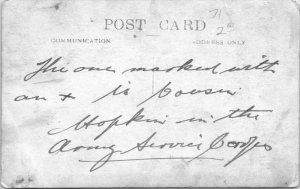 POST CARD
COMMUNICATION ADDRESS ONLY
The one marked with
an x is Cousin
Hopkin in the
Army Service Corps